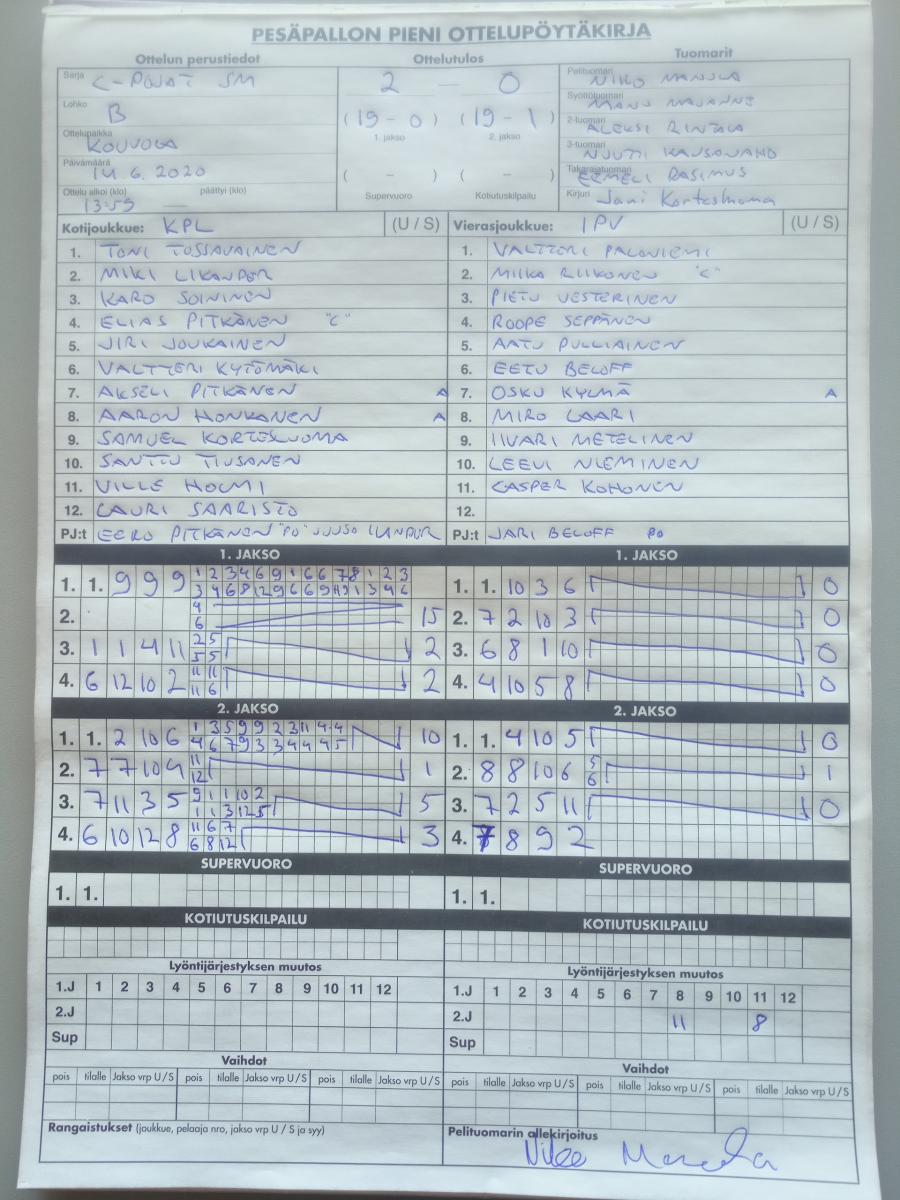 PESÄPALLON PIENI OTTELUPÖYTÄKIRJA
Ottelun perustiedot Ottelutulos Tuomarit
Sarja C-POJAT SM
Lohko B
Ottelupaikka KOUVOLA
Päivämäärä 14.6.2020
Ottelu alkoi (klo) päättyi (klo)
13:59 —
2 — 0
(19-0) (19-1)
1. jakso 2. jakso
( - ) ( - )
Supervuoro Kotiutuskilpailu
Pelituomari NIKO MANSLA
Syöttötuomari MANU MAJANNE
2-tuomari ALEKSI RINTALA
3-tuomari NUUTTI KAUSONAHO
Takarajatuomari EEMELI RASIMUS
Kirjuri Jani Kortesluoma
Kotijoukkue: KPL (U / S) Vierasjoukkue: IPV (U / S)
1. TONI TOSSAVAINEN
2. MIKI LIKANDER
3. KARO SOININEN
4. ELIAS PITKÄNEN "C"
5. JIRI JOUKAINEN
6. VALTTERI KYTÖMÄKI
7. AKSELI PITKÄNEN A
8. AARON HONKANEN A
9. SAMUEL KORTESLUOMA
10. SANTTU TIUSANEN
11. VILLE HOLMI
12. LAURI SAARISTO
PJ:t EERO PITKÄNEN "PO" JUUSO
1. VALTTERI PALONIEMI
2. MIIKA RIIKONEN "C"
3. PIETU VESTERINEN
4. ROOPE SEPPÄNEN
5. AATU PULLIAINEN
6. EETU BELOFF
7. OSKU KYLMÄ A
8. MIRO LAARI
9. IIVARI METELINEN
10. LEEVI NIEMINEN
11. CASPER KOHONEN
12.
PJ:t JARI BELOFF PO
1. JAKSO 1. JAKSO
1. 1. 9 9 9 1 2 3 4 6 9 1 6 6 7 8 1 2 3
3 4 6 8 12 9 6 6 9 11 12 1 3 4 6
2. 4 6 15
3. 1 1 4 11 2 5 5 5 2
4. 6 12 10 2 11 11 11 6 2
1. 1. 10 3 6 0
2. 7 2 10 3 0
3. 6 8 1 10 0
4. 4 10 5 8 0
2. JAKSO 2. JAKSO
1. 1. 2 10 6 1 3 5 9 9 2 3 11 4 4
4 6 7 9 3 3 4 4 4 5 10
2. 7 7 10 4 11 12 1
3. 7 11 3 5 9 1 1 10 2
1 1 3 12 5 5
4. 6 10 12 8 11 6 7
6 8 12 3
1. 1. 4 10 5 0
2. 8 8 10 6 5 6 1
3. 7 2 5 11 0
4. 7 8 9 2
SUPERVUORO SUPERVUORO
1. 1. 1. 1.
KOTIUTUSKILPAILU KOTIUTUSKILPAILU
Lyöntijärjestyksen muutos Lyöntijärjestyksen muutos
1.J 1 2 3 4 5 6 7 8 9 10 11 12 1.J 1 2 3 4 5 6 7 8 9 10 11 12
2.J 2.J 11 8
Sup Sup
Vaihdot Vaihdot
pois tilalle Jakso vrp U / S pois tilalle Jakso vrp U / S pois tilalle Jakso vrp U / S pois tilalle Jakso vrp U / S pois tilalle Jakso vrp U / S pois tilalle Jakso vrp U / S
Rangaistukset (joukkue, pelaaja nro, jakso vrp U / S ja syy) Pelituomarin allekirjoitus